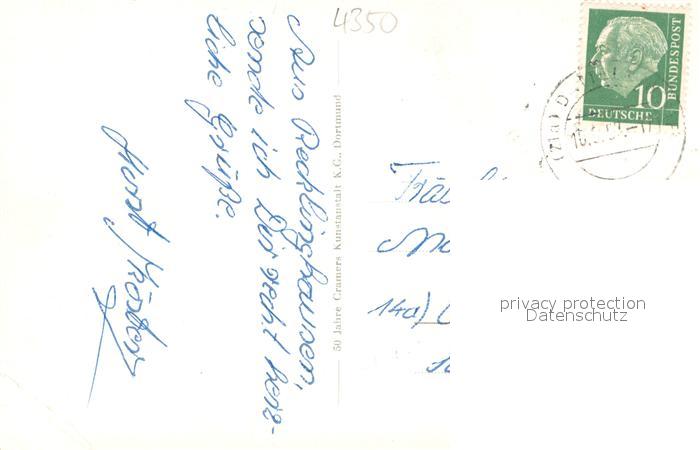 4350
Aus Recklinghausen,
sende ich Dir recht herz-
liche Grüße.
Horst
50 Jahre Cramers Kunstanstalt K.G., Dortmund
10
DEUTSCHE
BUNDESPOST
(21a)
Fräu
14a)
privacy protection
Datenschutz